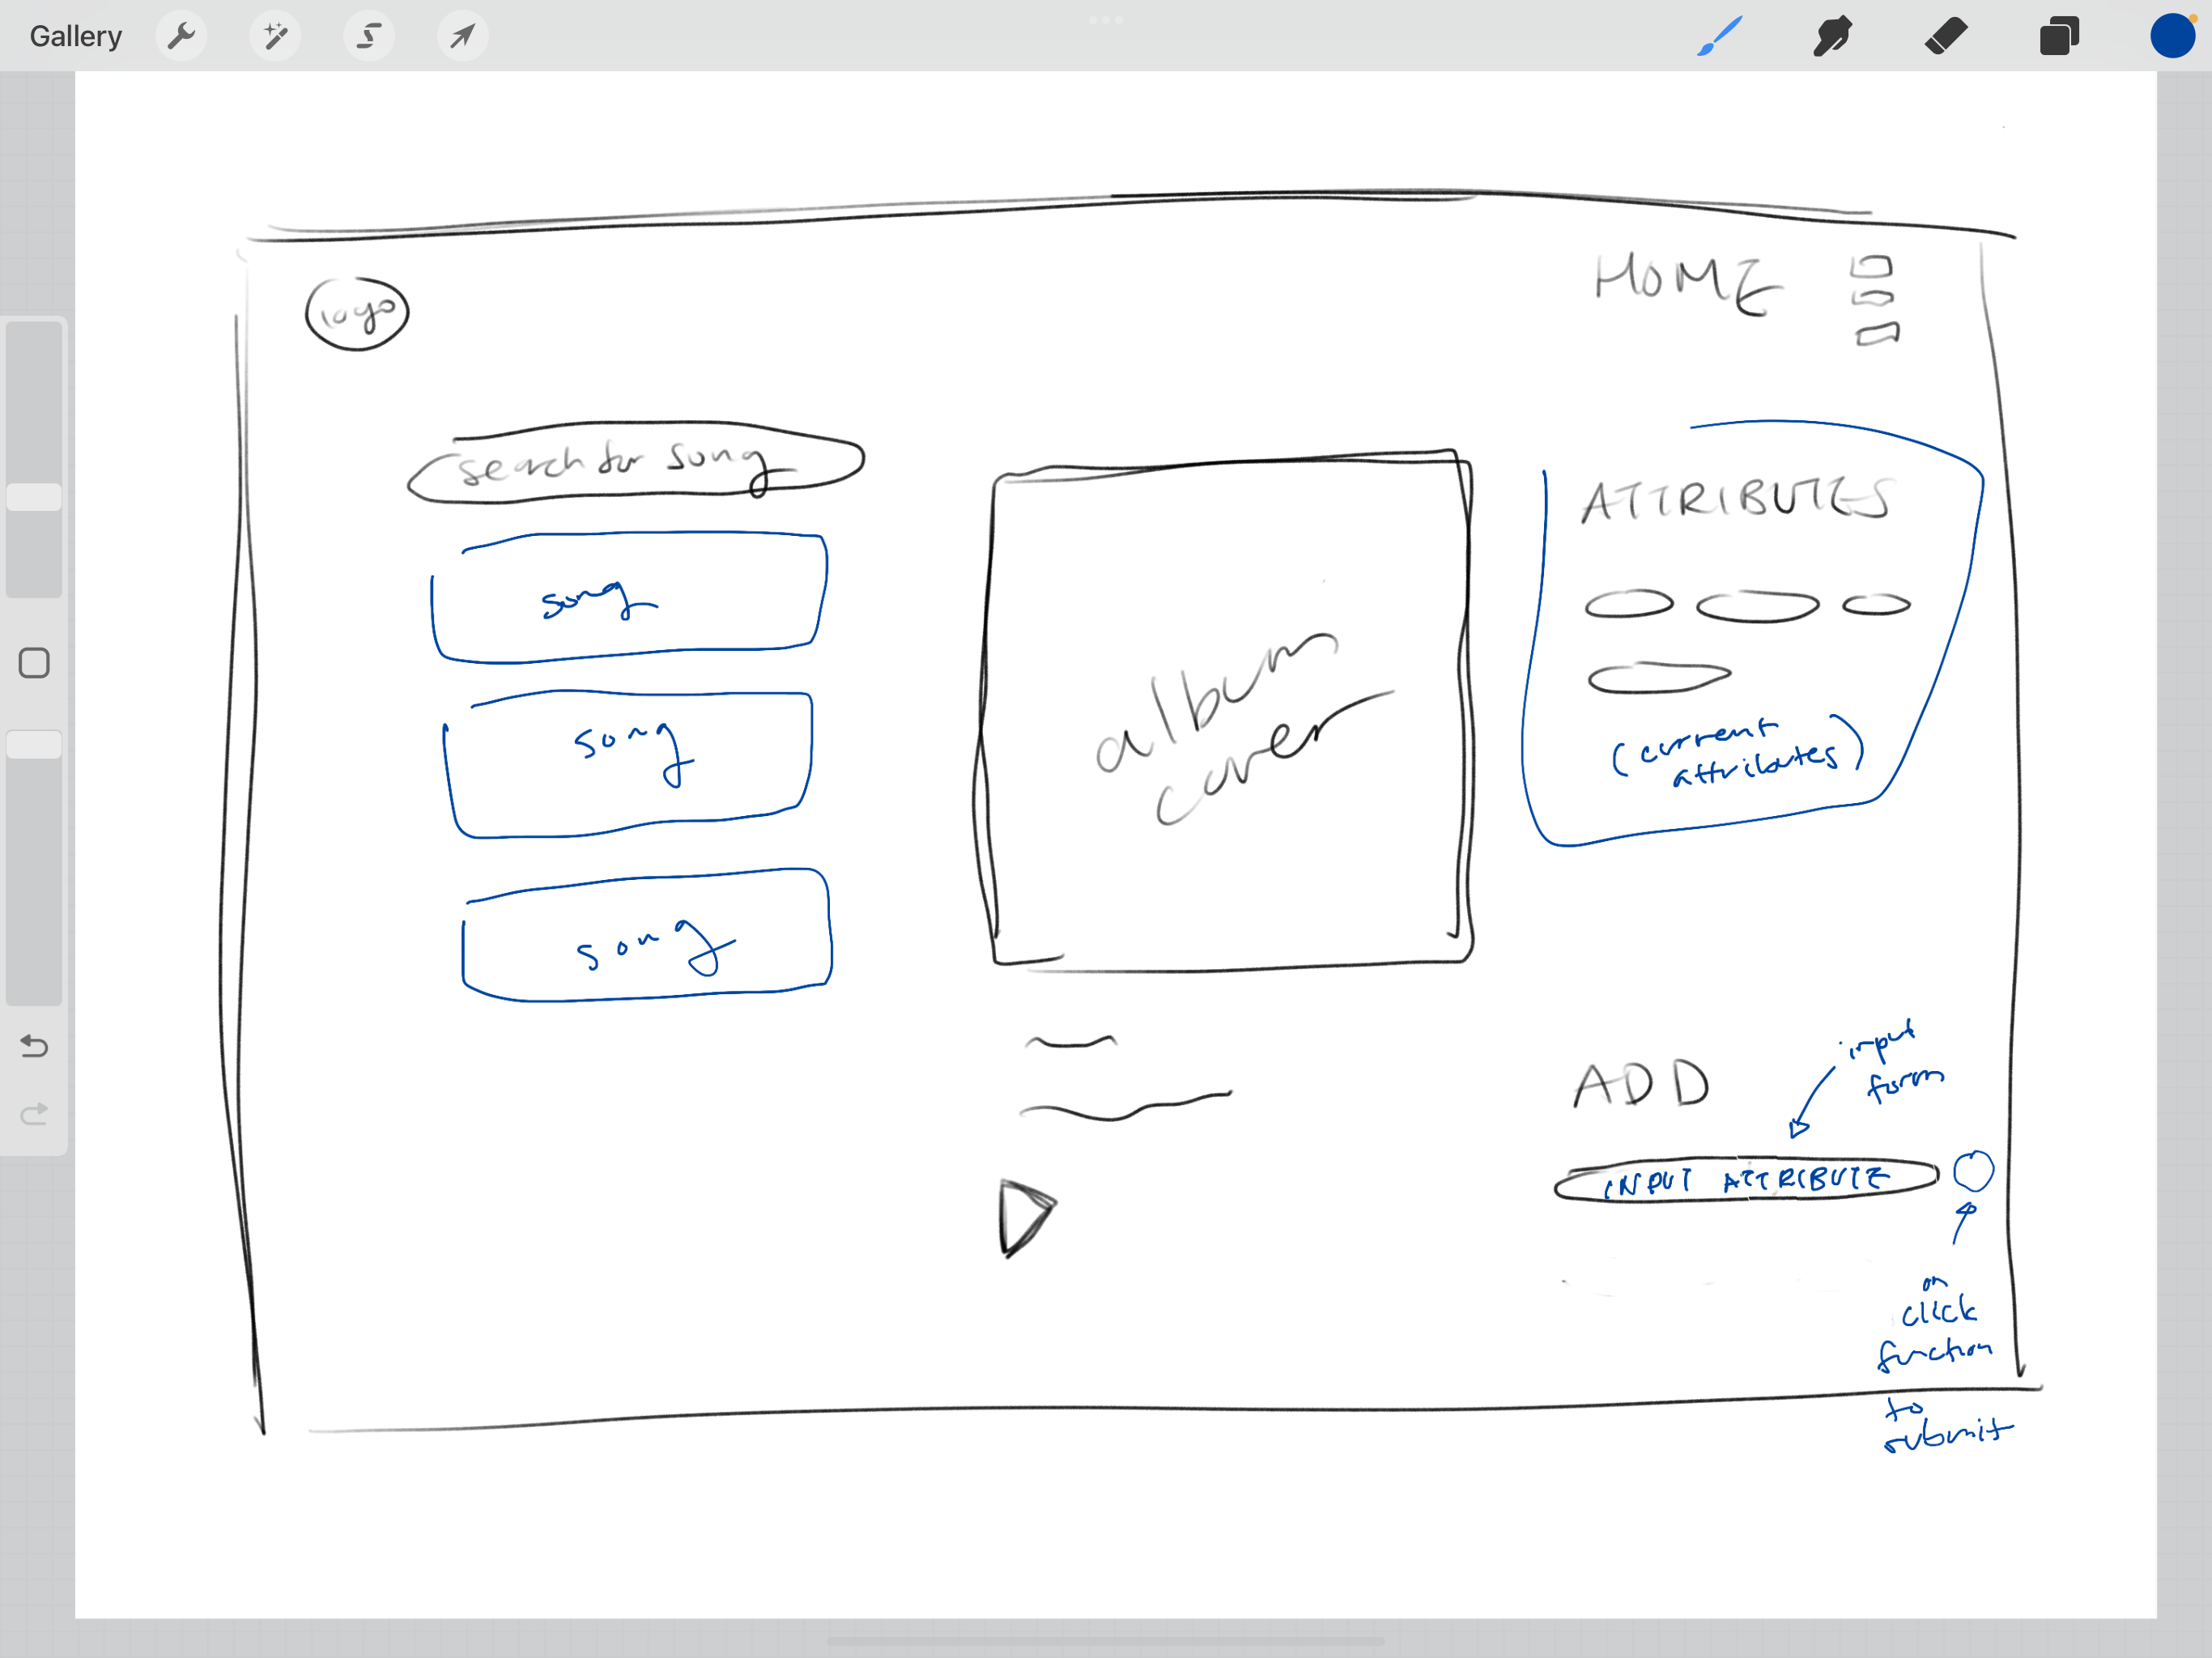 Gallery
logo
HOME
search for song
song
song
song
album
cover
ATTRIBUTES
(current
attributes)
ADD
input
form
INPUT ATTRIBUTE
on
click
function
to
submit